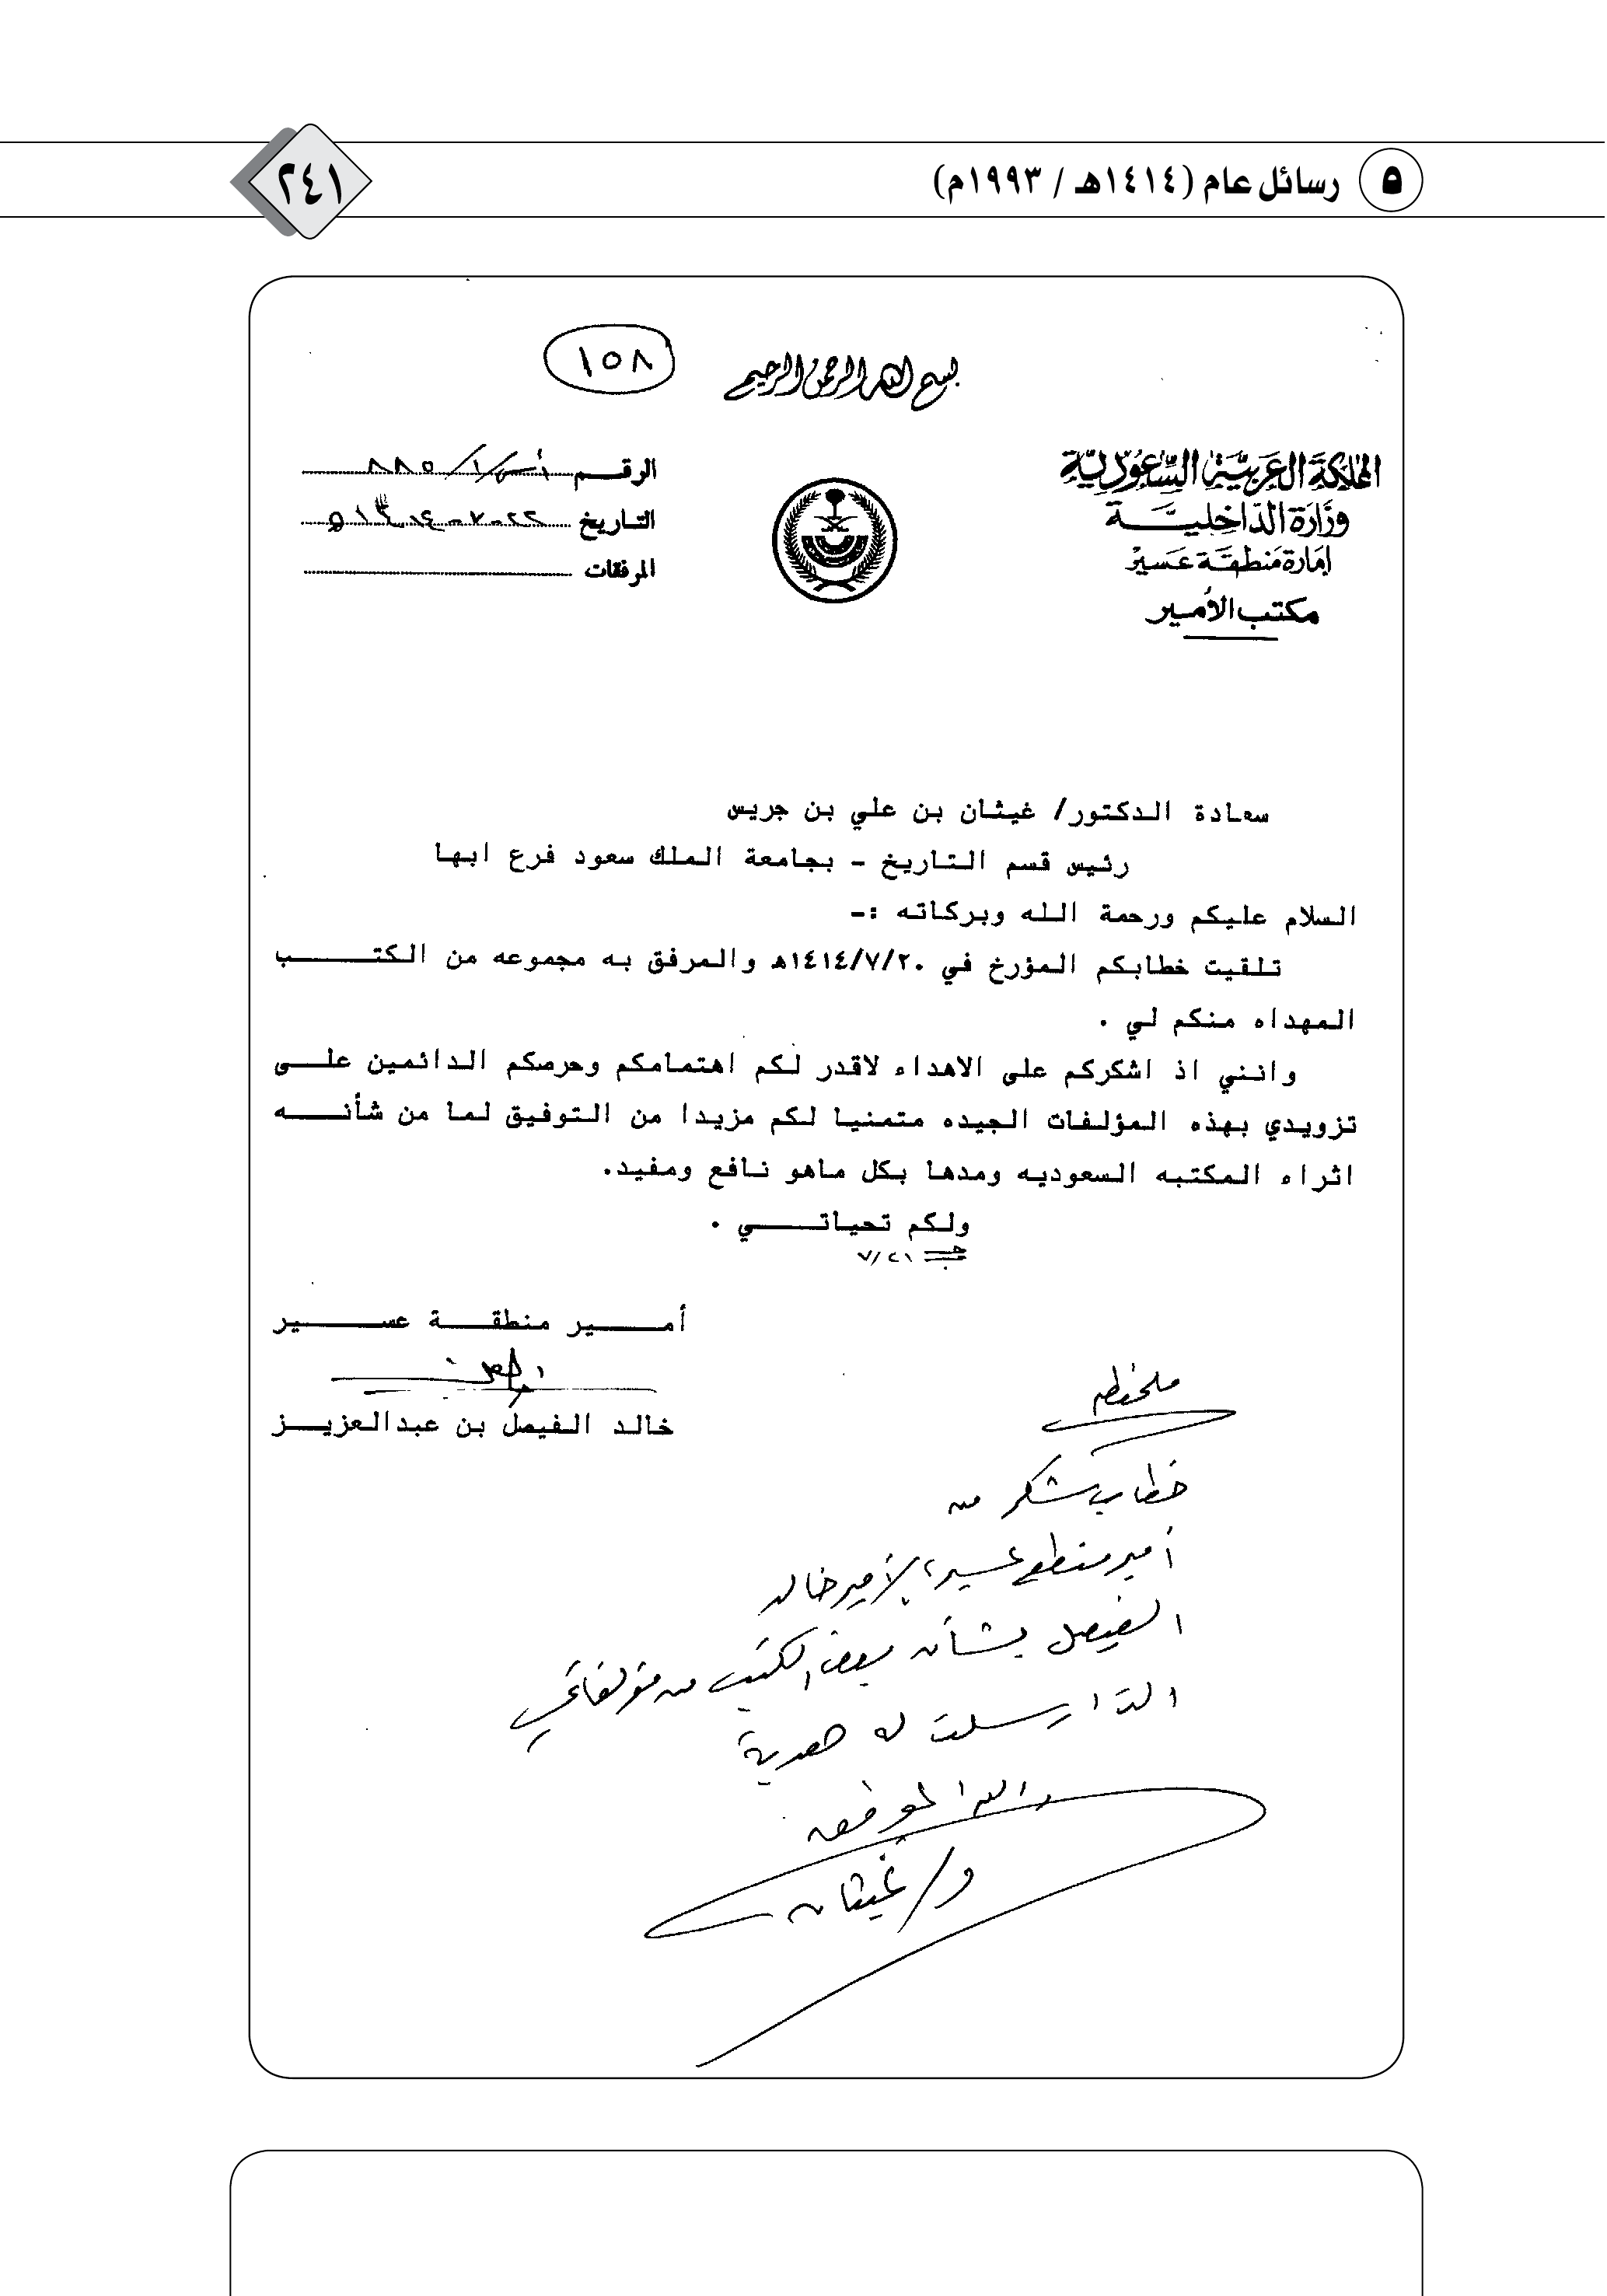 ٥ رسائل عام (١٤١٤هـ / ١٩٩٣م)
٢٤١
١٥٨
بسم الله الرحمن الرحيم
المملكة العربية السعودية
وزارة الداخلية
إمارة منطقة عسير
مكتب الأمير
الرقم ٨٨٥
التاريخ ٢٢-٧-١٤
المرفقات
سعادة الدكتور/ غيثان بن علي بن جريس
رئيس قسم التاريخ - بجامعة الملك سعود فرع ابها
السلام عليكم ورحمة الله وبركاته :-
تلقيت خطابكم المؤرخ في ١٤١٤/٧/٢٠هـ والمرفق به مجموعه من الكتـــــب
المهداه منكم لي .
وانني اذ اشكركم على الاهداء لاقدر لكم اهتمامكم وحرصكم الدائمين علـــى
تزويدي بهذه المؤلفات الجيده متمنيا لكم مزيدا من التوفيق لما من شأنـــه
اثراء المكتبه السعوديه ومدها بكل ماهو نافع ومفيد.
ولكم تحياتـــــي .
٧/٢١
أمـــــير منطقـــة عســـــير
خالد الفيصل بن عبدالعزيـــز
ملحظه
خطاب شكر من
أمير منطقة عسير، الأمير خالد
الفيصل بشأن بعض الكتب من مؤلفاتي
التي ارسلت له هدية
والله الموفق
د/ غيثان